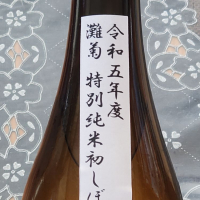 令和五年度
灘菊 特別純米初しぼ